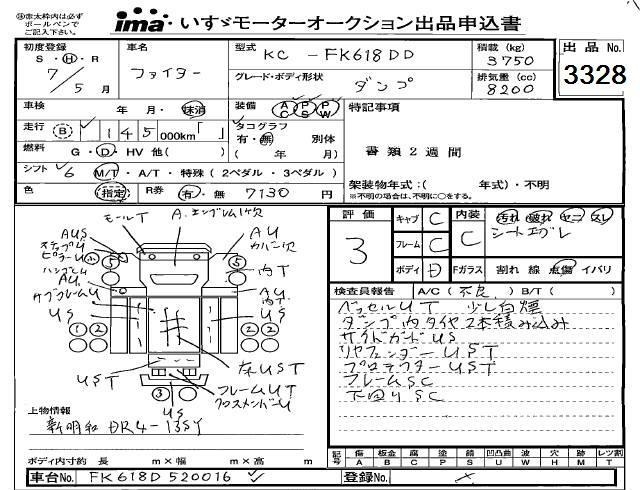 ㊟太枠内は必ず
ボールペンで
ご記入下さい。
ima いすゞモーターオークション出品申込書
初度登録
S・H・R
7/5月
車名
ファイター
型式 KC-FK618DD
グレード・ボディ形状
ダンプ
積載 (kg)
3750
排気量 (cc)
8200
出品 No.
3328
車検 年・月・抹消
装備 AC PS PW
特記事項
走行 B 145 000km「 」
タコグラフ
有・無 別体
( 年 月)
燃料 G・D・HV 他( )
書類2週間
シフト 6 M/T・A/T・特殊(2ペダル・3ペダル)
色 (指定) R券 有・無 7130 円
架装物年式:( 年式)・不明
※不明の場合は、不明に○をする。
モールT A.エングレムハ欠
AUS
AU
カバー欠
内T
ハンプU
サブフレームU
AU
内T
US
US
5 5
1 2 2 1
UST
左UST
フレームUT
クロスメンバーU
3
US
評価
3
キャブ C
フレーム C
ボディ D
内装 C
汚れ 破れ ヤニ スレ
シートエグレ
Fガラス 割れ 線 点傷 イバリ
検査員報告 A/C(不良) B/T( )
ベッセルUT 少し白煙
ダンプ内タイヤ2本積み込み
サイドガードUS
リヤフェンダーUST
プロテクターUST
フレームSC
下回りSC
上物情報
新明和 DR4-135Y
ボディ内寸約 長 m×幅 m×高 m
記号 傷 板金 腐 塗 錆 凹凸曲 波 穴 跡 レツ割
A B C P S U W H M T
車台No. FK618D520016
登録No.